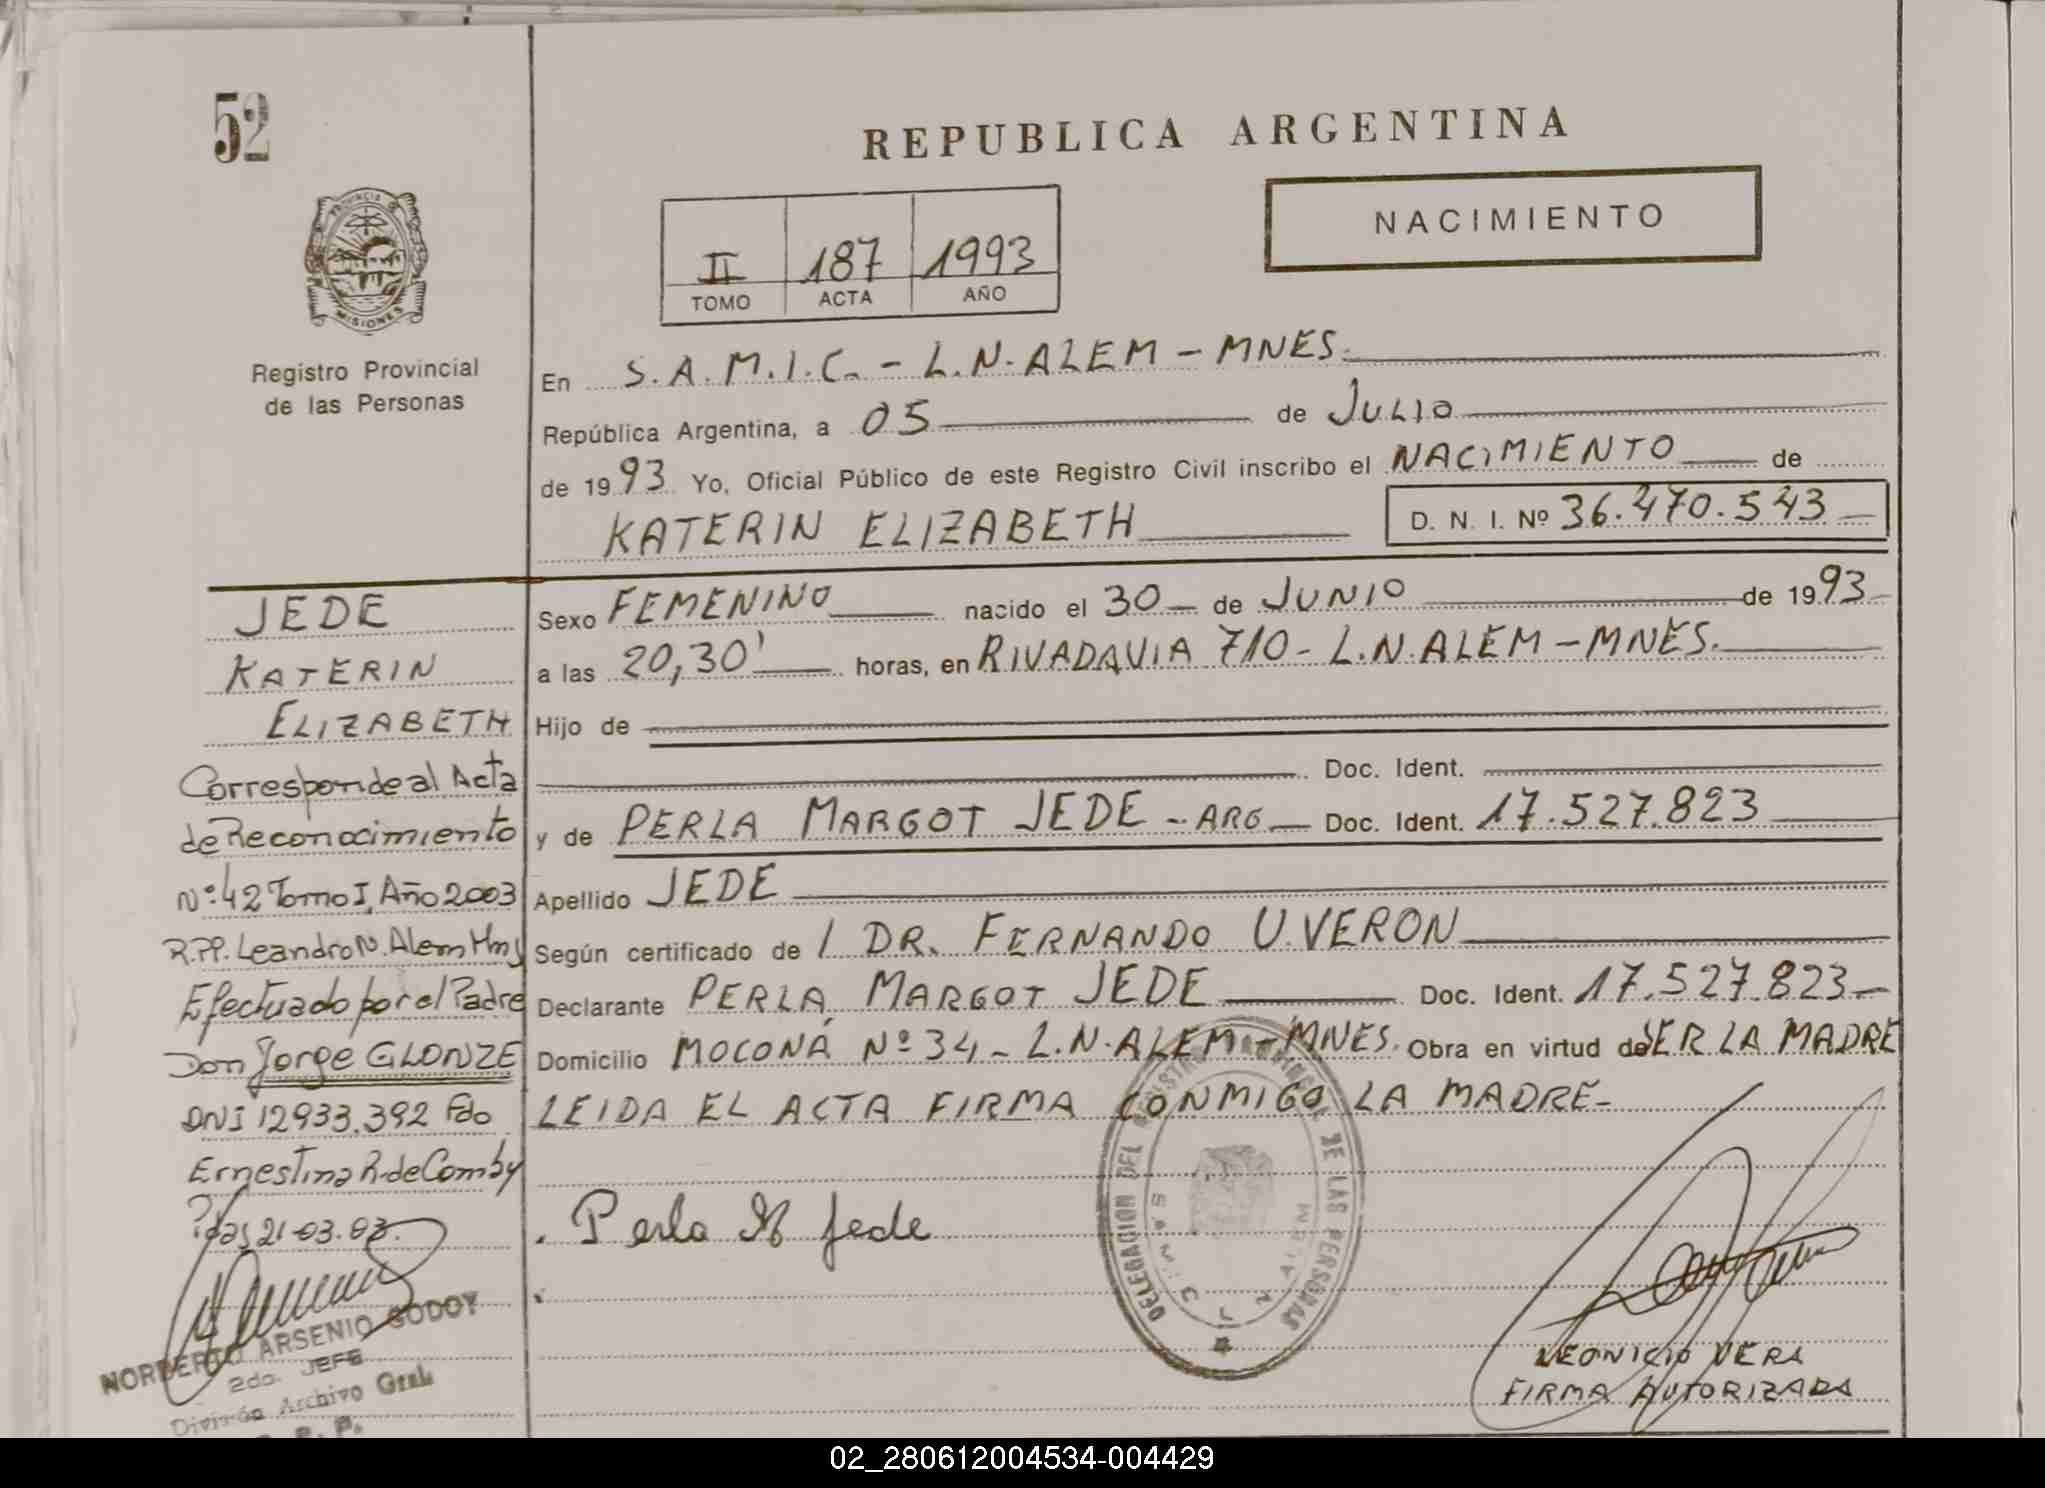 52
REPUBLICA ARGENTINA
PROVINCIA DE MISIONES
Registro Provincial
de las Personas
II 187 1993
TOMO ACTA AÑO
NACIMIENTO
En S.A.M.I.C. - L.N. ALEM - MNES.
República Argentina, a 05 de JULIO
de 1993 Yo, Oficial Público de este Registro Civil inscribo el NACIMIENTO de
KATERIN ELIZABETH D. N. I. Nº 36.470.543
JEDE
KATERIN
ELIZABETH
Corresponde al Acta
de Reconocimiento
Nº 42 Tomo I, Año 2003
R.PP. Leandro N. Alem Mns
Efectuado por el Padre
Don Jorge GLONZE
DNI 12933.392 Fdo
Ernestina R. de Comby
Pdas 21-03.03.
NORBERTO ARSENIO GODOY
2do. JEFE
División Archivo Gral.
R. P.
Sexo FEMENINO nacido el 30 de JUNIO de 1993
a las 20,30' horas, en RIVADAVIA 710 - L.N. ALEM - MNES.
Hijo de
Doc. Ident.
y de PERLA MARGOT JEDE - ARG Doc. Ident. 17.527.823
Apellido JEDE
Según certificado de / DR. FERNANDO U. VERON
Declarante PERLA MARGOT JEDE Doc. Ident. 17.527.823
Domicilio MOCONÁ Nº 34 - L.N. ALEM - MNES. Obra en virtud de SER LA MADRE
LEIDA EL ACTA FIRMA CONMIGO LA MADRE -
Perla M Jede
DELEGACION DEL REGISTRO PROVINCIAL DE LAS PERSONAS
LEONICIO VERA
FIRMA AUTORIZADA
02_280612004534-004429